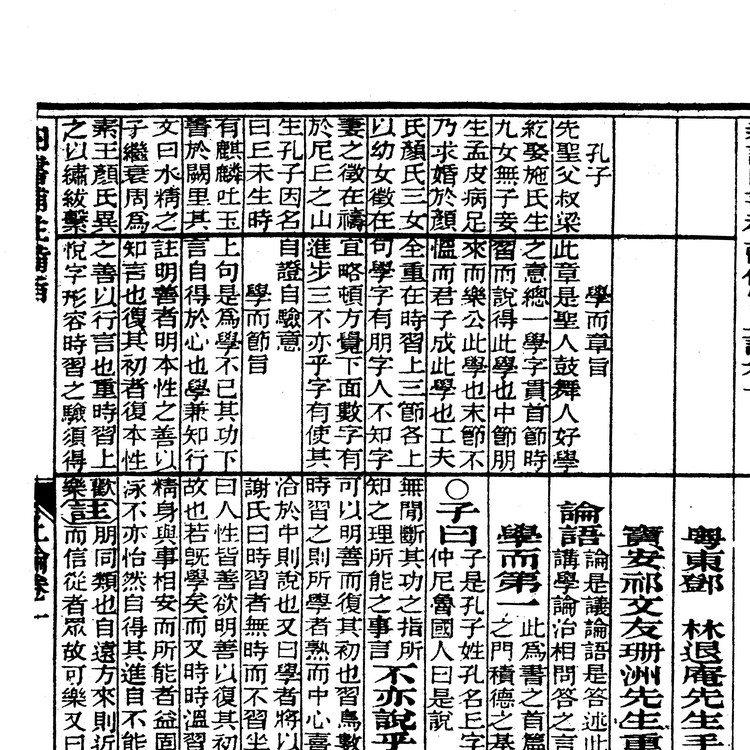 孔子
先聖父叔梁
紇娶施氏生
九女無子妾
生孟皮病足
乃求婚於顏
氏顏氏三女
以幼女徵在
妻之徵在禱
於尼丘之山
生孔子因名
曰丘未生時
有麒麟吐玉
書於闕里其
文曰水精之
子繼衰周爲
素王顏氏異
之以繡紱繫
學而章旨
此章是聖人鼓舞人好學
之意總一學字貫首節時
習而說得此學也中節朋
來而樂公此學也末節不
慍而君子成此學也工夫
全重在時習上三節各上
句學字有朋字人不知字
宜略頓方覺下面數字有
進步三不亦乎字有使其
自證自驗意
學而節旨
上句是爲學不已其功下
言自得於心也學兼知行
註明善者明本性之善以
知言也復其初者復本性
之善以行言也重時習上
悅字形容時習之驗須得
粵東鄧 林退庵先生手
寶安祁文友珊洲先生重
論語
論是議論語是答述此
講學論治相問答之言
學而第一
此爲書之首篇
之門積德之基
○子曰
子是孔子姓孔名丘字
仲尼魯國人曰是說
無間斷其功之指所
知之理所能之事言
不亦說乎
可以明善而復其初也習鳥數
時習之則所學者熟而中心喜
洽於中則說也又曰學者將以
謝氏曰時習者無時而不習坐
曰人性皆善欲明善以復其初
故也若旣學矣而又時時溫習
精身與事相安而所能者益固
泳不亦怡然自得其進自不能
歡
樂
註
朋同類也自遠方來則近
而信從者眾故可樂又曰
四書補註備旨
上論卷一